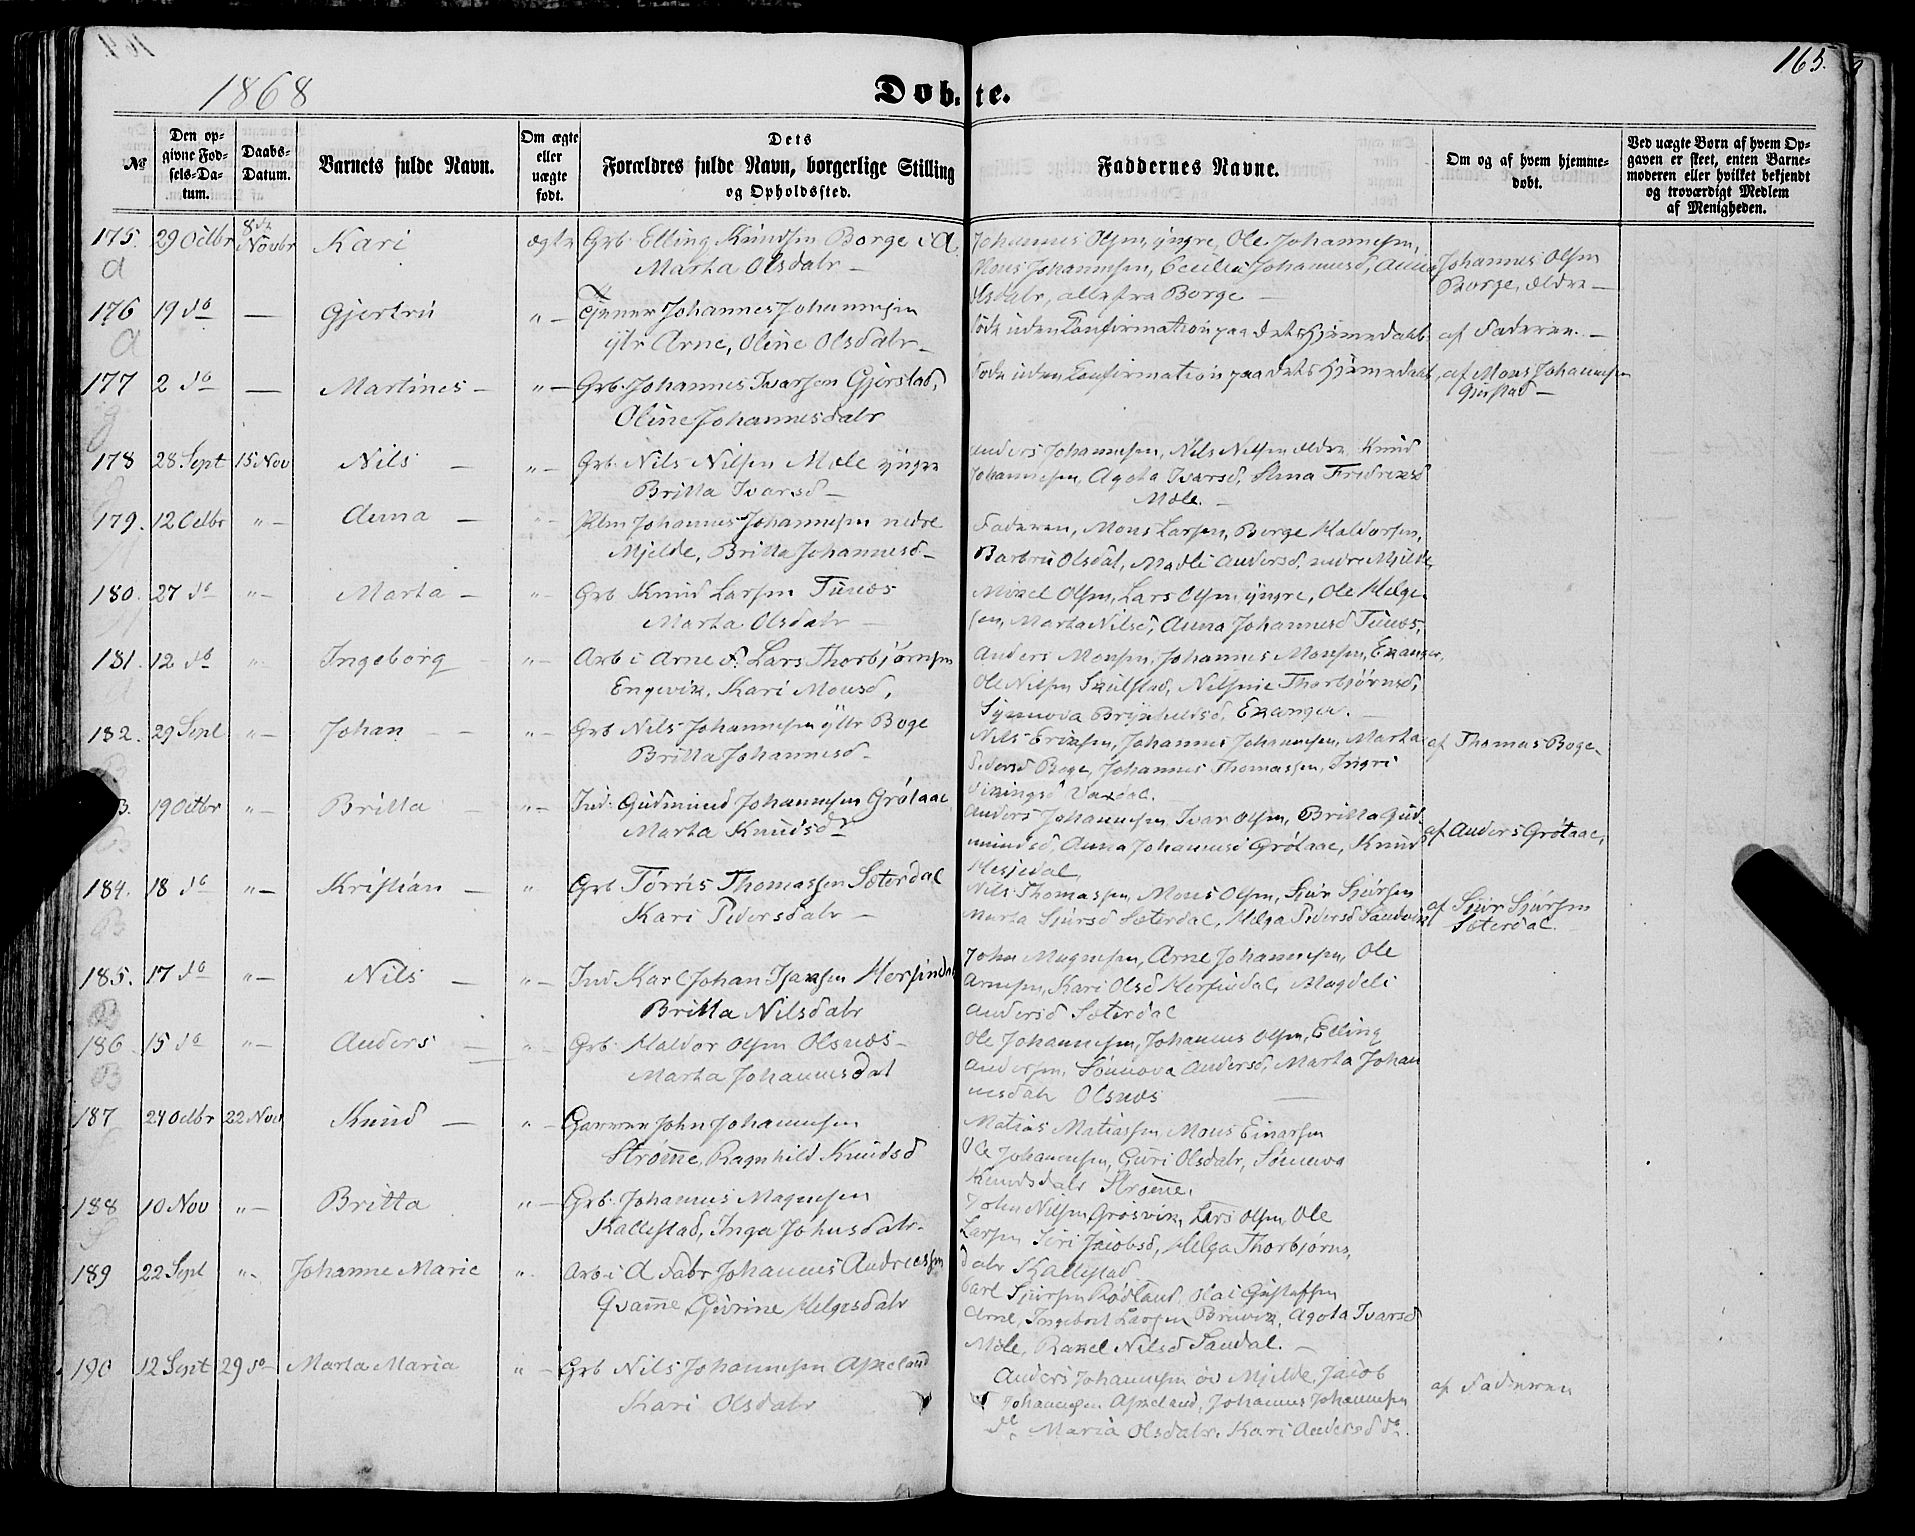 165.
1868
Døbte.
№
Den opgivne Fødsels-Datum.
Daabs-Datum.
Barnets fulde Navn.
Om ægte eller uægte født.
Dets Forældres fulde Navn, borgerlige Stilling og Opholdssted.
Faddernes Navne.
Om og af hvem hjemmedøbt.
Ved uægte Børn af hvem Opgaven er skeet, enten Barnemoderen eller hvilket bekjendt og troværdigt Medlem af Menigheden.
175. 29 Octbr 8de Novbr Kari ægte Grb. Elling Knudsen Borge i A. Johannes Olsen, yngre, Ole Johannesen,
a Marta Olsdatr — Mons Johannesen, Cecilia Johannesd, Anna Johannes Olsen
Olsdatr, alle fra Borge — Borge, ældre —
176 19 do — Gjertru " — Tjener Johannes Johannesen
a ytr Arne, Oline Olsdatr — Døde uden Confirmation paa dets Hjemmedaab. af Faderen. —
177 2 do — Martines — " — Grb. Johannes Ivarsen Gjerstad, Døde uden Confirmation paa dets Hjemmedaab, af Mons Johannesen
Oline Johannesdatr Gjerstad —
178 28 Sept 15 Nov Nils — " — Grb. Nils Nilsen Mole yngre Anders Johannesen, Nils Nilsen ældre Knud
Britta Ivarsd — Johannesen, Agota Ivarsd, Fredrexsd
Mole. —
179. 12 Octbr " — Anna — " — Johannes Johannesen nedre Faderen, Mons Larsen, Borge Haldorsen,
Mjelde, Britta Johannesd — Barbru Olsdat, Madli Andersd, nedre Mjelde,
180. 27 do " — Marta — " — Grb Knud Larsen Tunæs Mikel Olsen, Lars Olsen yngre, Ole Helge-
Marta Olsdatr — sen, Marta Nilsd, Anna Johannesd Tunæs,
181. 12 do " Ingeborg — " — Arb i Arne f. Lars Thorbjørnsen Anders Monsen, Johannes Monsen, Exanger,
Engevik, Kari Monsd, Ole Nilsen Skulstad, Nilsine Thorbjørnsd,
Synnova Brynhildsd, Exanger. —
182. 29 Sept " — Johan — — " — Grb Nils Johannesen yttr Boge Nils Eriksen, Johannes Johannesen, Marta af Thomas Boge,
Britta Johannesd — Pedersd Boge, Johannes Thomassen, Ingri
Vikingsd Vaxdal.
3. 19 Octbr " — Britta — " — Ind. Gudmund Johannesen Grøtaae, Anders Johannesen, Ivar Olsen, Britta Gud-
Marta Knudsdr mundsd, Anna Johannesd Grøtaae, Knud af Anders Grøtaae,
Hesjedal,
184. 18 do " — Kristian — " Grb Tørris Thomassen Sæterdal Nils Thomassen, Mons Olsen, Sjur Sjursen af Sjur Sjursen
Kari Pedersdatr — Marta Sjursd Sæterdal, Helga Pedersd Sandvik Sæterdal.
185. 17 do " — Nils — " — Ind Karl Johan Isaksen Herfindal John Magnesen, Arne Johannesen, Ole
Britta Nilsdatr Arnesen, Kari Olsd Herfindal, Magdeli
Andersd Sæterdal
186 15 do " — Anders — " — Grb. Haldor Olsen Olsnæs — Ole Johannesen, Johannes Olsen, Elling
Marta Johannesdat Andersen, Sønnova Andersd, Marta Johan-
nesdatr Olsnæs
187 24 Octbr 22 Nov Knud — " — Garver John Johannesen Matias Matiassen, Mons Einarsen
Strømme, Ragnhild Knudsd Ole Johannesen, Guri Olsdatr, Sønneva
Knudsdatr Strømme,
188 10 Nov " — Britta " — Grb. Johannes Magnesen John Nilsen Grøsvik, Lars Olsen, Ole
Kallestad, Inga Johnsdatr. Larsen Siri Jacobsd, Helga Thorbjørns-
datr Kallestad
189 22 Sept " Johanne Marie " Arb i A Fabr Johannes Andreassen Carl Sjursen Rødland, Olai Gustafsen
Qvamme, Gurine Helgesdatr Arne, Ingebort Larsen Bruvik, Agota Ivarsd
Mole, Rakel Nilsd Sandal. —
190 12 Sept 29 do Marta Maria " — Grb Nils Johannesen Apxeland Anders Johannesen øv Mjelde, Jacob af Faderen
Kari Olsdatr Johannesen Apxeland, Johannes Johannesen
do, Maria Olsdatr, Kari Andersd do.